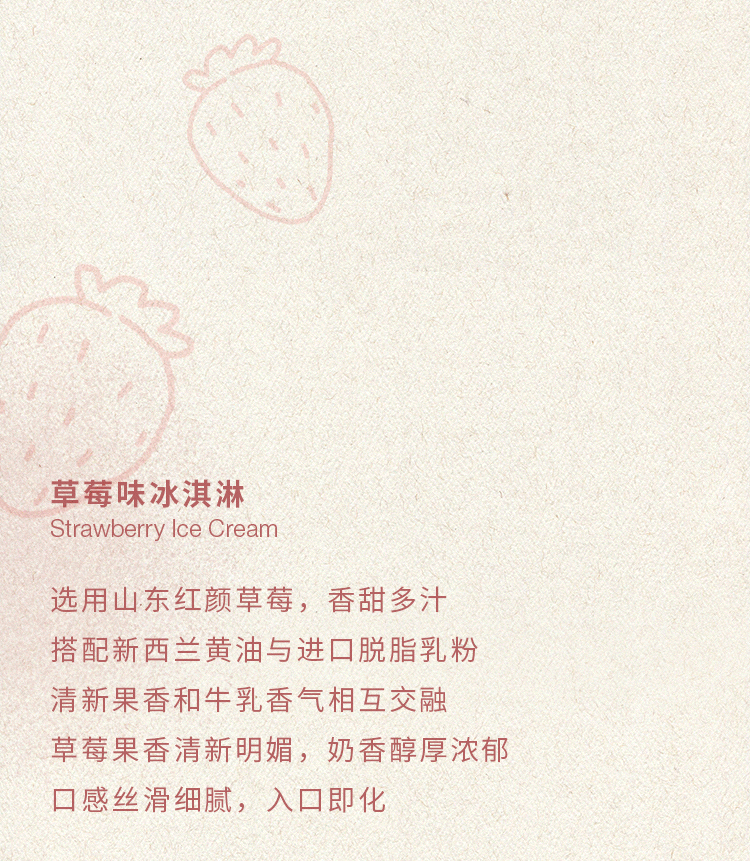 草莓味冰淇淋
Strawberry Ice Cream
选用山东红颜草莓，香甜多汁
搭配新西兰黄油与进口脱脂乳粉
清新果香和牛乳香气相互交融
草莓果香清新明媚，奶香醇厚浓郁
口感丝滑细腻，入口即化